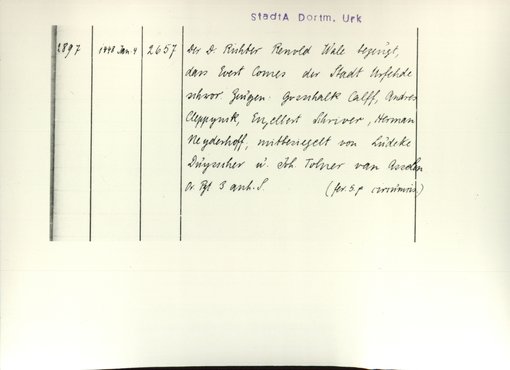 StadtA Dortm. Urk
2897 1448 Jan 4 2657 Der D. Richter Renold Wale bezeugt,
dass Evert Comes der Stadt Urfehde
schwor. Zeugen: Gosschalk Calff, Andres
Cleppynk, Engelbert Schriver, Herman
Neyderhoff, mitbesiegelt von Lüdeke
Duysscher u. Joh Tolner van Asselen
Or. Pgt 3 anh. S. (fer. 5. p. circumcis)